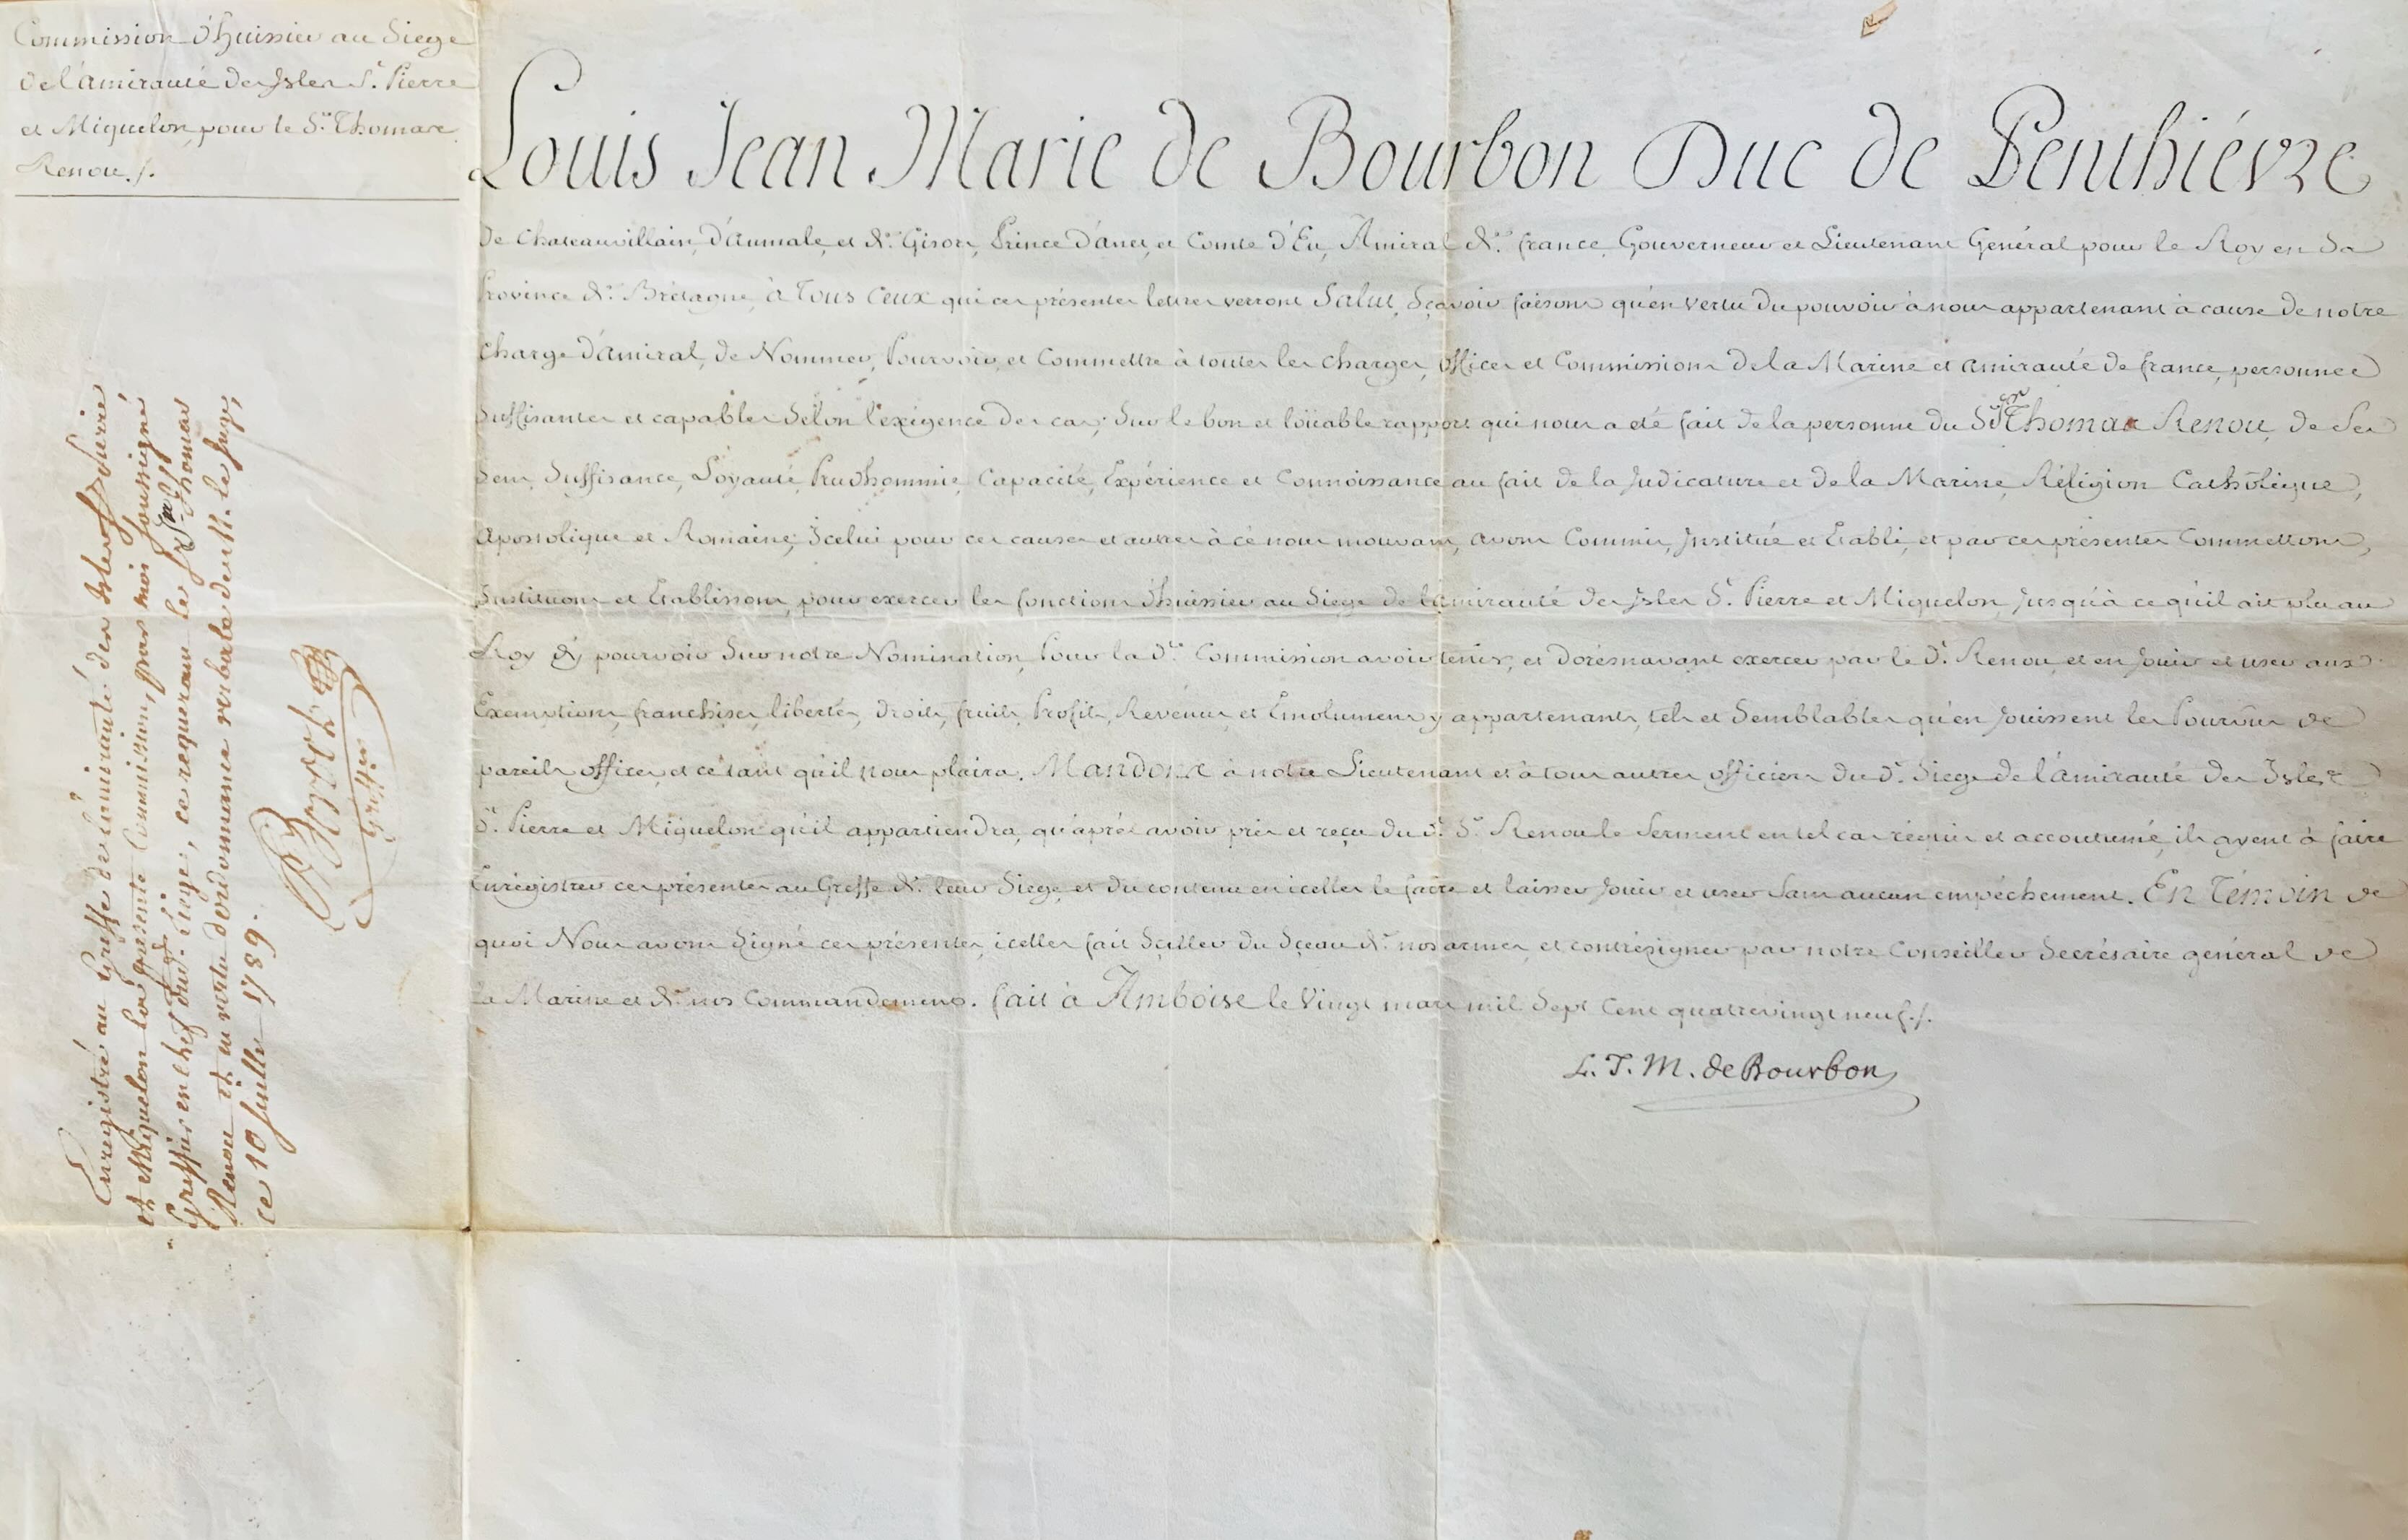 Commission d'huissier au Siege
de l'amirauté des Isles S.t Pierre
et Miquelon, pour le S.r Thomas
Renou ./.
Louis Jean Marie de Bourbon Duc de Penthiévre
de Chateauvillain, d'Aumale, et de Gisors, Prince d'anet, et Comte d'Eu, Amiral de france, Gouverneur et Lieutenant Genéral pour le Roy en Sa
Province de Brétagne, à Tous Ceux qui ces présentes lettres verront Salut, Sçavoir faisons qu'en vertu du pouvoir à nous appartenant à cause de notre
Charge d'amiral, de Nommer, Pourvoir, et Commettre à toutes les Charges, Offices et Commissions de la Marine et amirauté de france, personnes
Suffisantes et capables Selon l'exigence des cas; Sur le bon et loüable rapport qui nous a eté fait de la personne du S.r Thomas Renou, de Ses
Sens, Suffisance, Loyauté, Prudhommie, Capacité, Expérience et Connoissance au fait de la Judicature et de la Marine, Réligion Catholique,
Apostolique et Romaine; Icelui pour ces causes et autres à cé nous mouvans, avons Commis, Institué et Etabli, et par ces présentes Commettons,
Instituons et Etablissons, pour exercer les fonctions d'huissier au Siege de l'amirauté des Isles S.t Pierre et Miquelon, jusqu'à ce qu'il ait plu au
Roy d'y pourvoir Sur notre Nomination, Pour la d.te Commission avoir tenir, et dorésnavant exercer par le d.t Renou, et en Jouir et user aux
Exemptions, franchises, libertés, droits, fruits, Profits, Revénus et Emolumens y appartenants, tels et Semblables qu'en Jouissent les Pourvûs de
pareils offices, et cé tant qu'il nous plaira. Mandons à notre Lieutenant et à tous autres officiers du d.t Siege de l'amirauté des Isles
S.t Pierre et Miquelon qu'il appartiendra, qu'aprés avoir pris et reçu du d.t S.r Renou le Serment en tel cas réquis et accoutumé, ils ayent à faire
Enrégistrer ces présentes au Greffe de leur Siege, et du contenu en icelles le faire et laisser Jouir et user Sans aucun empéchement. En Témoin de
quoi Nous avons Signé ces présentes, icelles fait Sceller du Sceau de nos armes, et contrésigner par notre Conseiller Secrétaire genéral de
la Marine et de nos Commandemens. fait à Amboise le Vingt mars mil Sept Cent quatrevingt neuf ./.
L. J. M. de Bourbon
Enregistré au Greffe de l'amirauté des Isles S.t Pierre
et Miquelon la présente Commission, par moi soussigné
Greffier en chef dud. siege, ce requerant le S.r Thomas
Renou et en vertu d'ordonnance verbale de M. le juge,
ce 10 Juillet 1789.
Greffier